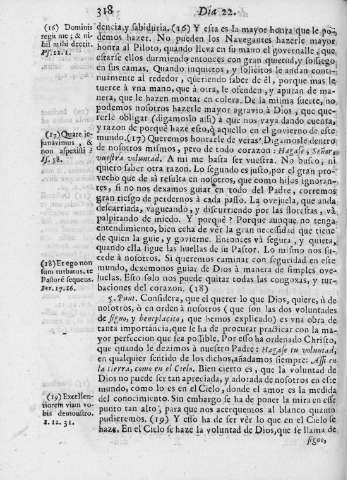 318 Dia 22.
(16) Dominis
regit me; & ni-
hil mihi deerit.
Ps. 22. 1.
(17) Quare je-
junavimus, &
non aspexisti?
Is. 58.
(18) Et ego non
sum turbatus, te
Pastorẽ sequens.
Jer. 17. 16.
(19) Excellen-
tiorem viam vo-
bis demonstro.
1. 12. 31.
dencia, y sabiduria. (16) Y esta es la mayor honra que le po-
demos hazer. No pueden los Navegantes hazerle mayor
honra al Piloto, quando lleva en su mano el governalle, que
estarse ellos durmiendo entonces con gran quietud, y sossego
en sus camas. Quando inquietos, y solicitos le andan conti-
nuamente al rededor, queriendo saber de él, porque mas le
tuerce à vna mano, que à otra, le ofenden, y apuran de ma-
nera, que le hazen montar en colera. De la misma suerte, no
podemos nosotros hazerle mayor agravio à Dios, que que-
rerle obligar (digamoslo assi) à que nos vaya dando cuenta,
y razon de porquè haze esso, ò aquello en el govierno de este
mundo. (17) Queremos honrarle de veras? Digamosle dentro
de nosotros mismos, pero de todo corazon: Hagase, Señor,
vuestra voluntad. A mi me basta ser vuestra. No busco, ni
quiero saber otra razon. Lo segundo es justo, por el gran pro-
vecho que de aì resulta en nosotros, que como hijos ignoran-
tes, si no nos dexamos guiar en todo del Padre, corremos
gran riesgo de perdernos à cada passo. La ovejuela, que anda
descarriada, vagueando, y discurriendo por las florestas, và
palpitando de miedo. Y porquè? Porque aunque no tenga
entendimiento, bien echa de vèr la gran necessidad que tiene
de quien la guie, y govierne. Entonces và segura, y quieta,
quando ella sigue las huellas de su Pastor. Lo mismo nos suc-
cede à nosotros. Si queremos caminar con seguridad en este
mundo, dexemonos guiar de Dios à manera de simples ove-
juelas. Esso solo nos puede quitar todas las congoxas, y tur-
baciones del corazon. (18)
5. Punt. Considera, que el querer lo que Dios quiere, ò de
nosotros, ò en orden à nosotros (que son las dos voluntades
de signo, y beneplacito, que hemos explicado) es vna obra de
tanta importancia, que se ha de procurar practicar con la ma-
yor perfeccion que sea possible. Por esso ha ordenado Christo,
que quando le dezimos à nuestro Padre: Hagase tu voluntad,
en qualquier sentido de los dichos, añadamos siempre: Assi en
la tierra, como en el Cielo. Bien cierto es, que la voluntad de
Dios no puede ser tan apreciada, y adorada de nosotros en este
mundo, como lo es en el Cielo, donde el amor es la medida
del conocimiento. Sin embargo se ha de poner la mira en esse
punto tan alto, para que nos acerquemos al blanco quanto
pudieremos. (19) Y esso ha de ser vèr lo que en el Cielo se
haze. En el Cielo se haze la voluntad de Dios, que se llama de
signo,